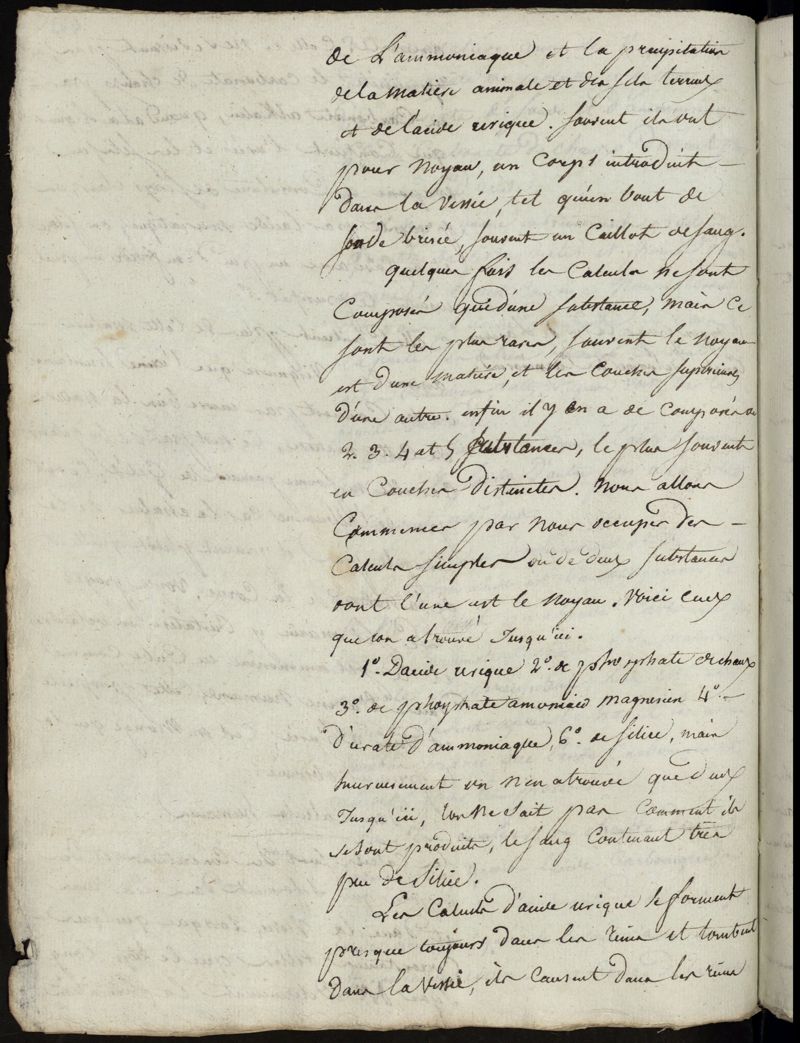 de L'ammoniaque et la precipitation
de la matiere animale et des sels terreux
et de l'acide urique. souvent ils ont
pour noyau, un Corps introduit –
dans la vessie, tel qu'un bout de
sonde brisée, souvent un Caillot de sang.
quelques fois les Calculs ne sont
Composés que d'une substance, mais ce
sont les plus rares, souvent le noyau
est d'une matiére, et les couches superieures
d'une autre. enfin il y en a de composés de
2. 3. 4 at 5 substances, le plus souvent
en Couches distinctes. Nous allons
Commencer par nous occuper des –
Calculs simples ou de deux substances
dont l'une est le noyau. Voici ceux
que l'on a trouvé Jusqu'ici.
1º. D'acide urique 2º. de phosphate de chaux
3º. de phosphate amoniaco magnesien 4º. –
D'urate d'ammoniaque, 6º. de silice, mais
heureusement on n'en a trouvé que deux
Jusqu'ici, l'on ne sait pas comment ils
se sont produits, le sang Contenant très
peu de silice.
Les Calculs d'acide urique se forment
presque toujours dans les reins et tombent
dans la vessie, ils causent dans les reins